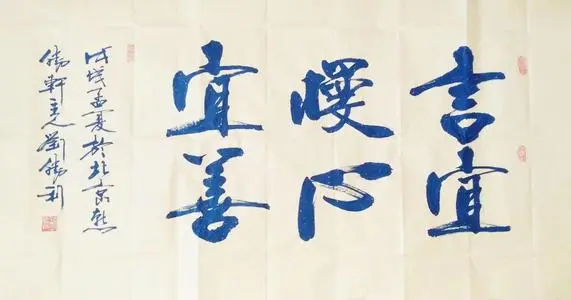 言宜
慢心
宜善
戊戌孟夏於北京慧
儒軒主人劉勝利